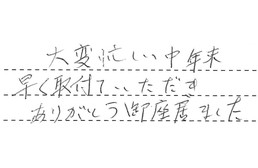 大変忙しい中年末
早く取付ていただき
ありがとう御座居ました